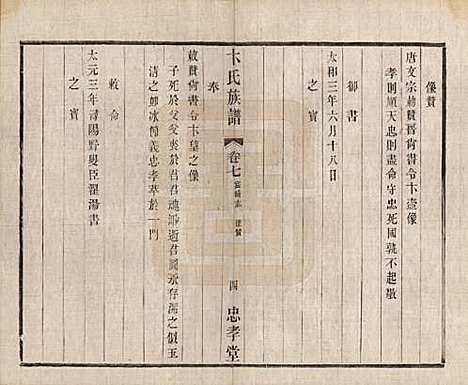 像贊
唐文宗勑贊晋尚書令卞壼像
孝則順天忠則盡命守忠死國孰不起敬
御書
太和三年六月十八日
之寳
卞氏族譜
卷七
像贊
四
忠孝堂
奉
敕贊尚書令卞望之像
子死於父父喪於君君魂
逝君國永存
之似玉
清之如冰節義忠孝萃於一門
敕命
太元三年尋陽野叟臣翟湯書
之寳